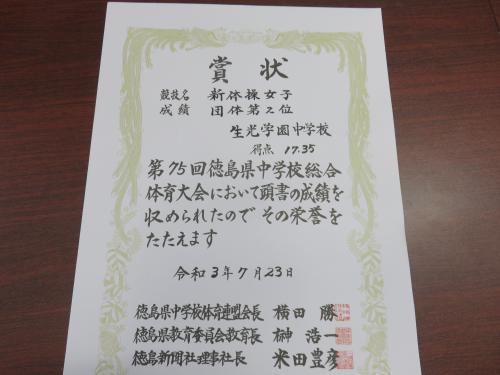 賞状
競技名 新体操女子
成績 団体第2位
生光学園中学校
得点 17.35
第75回徳島県中学校総合
体育大会において頭書の成績を
収められたので その栄誉を
たたえます
令和3年7月23日
徳島県中学校体育連盟会長 横田 勝
徳島県教育委員会教育長 榊 浩一
徳島新聞社理事社長 米田豊彦